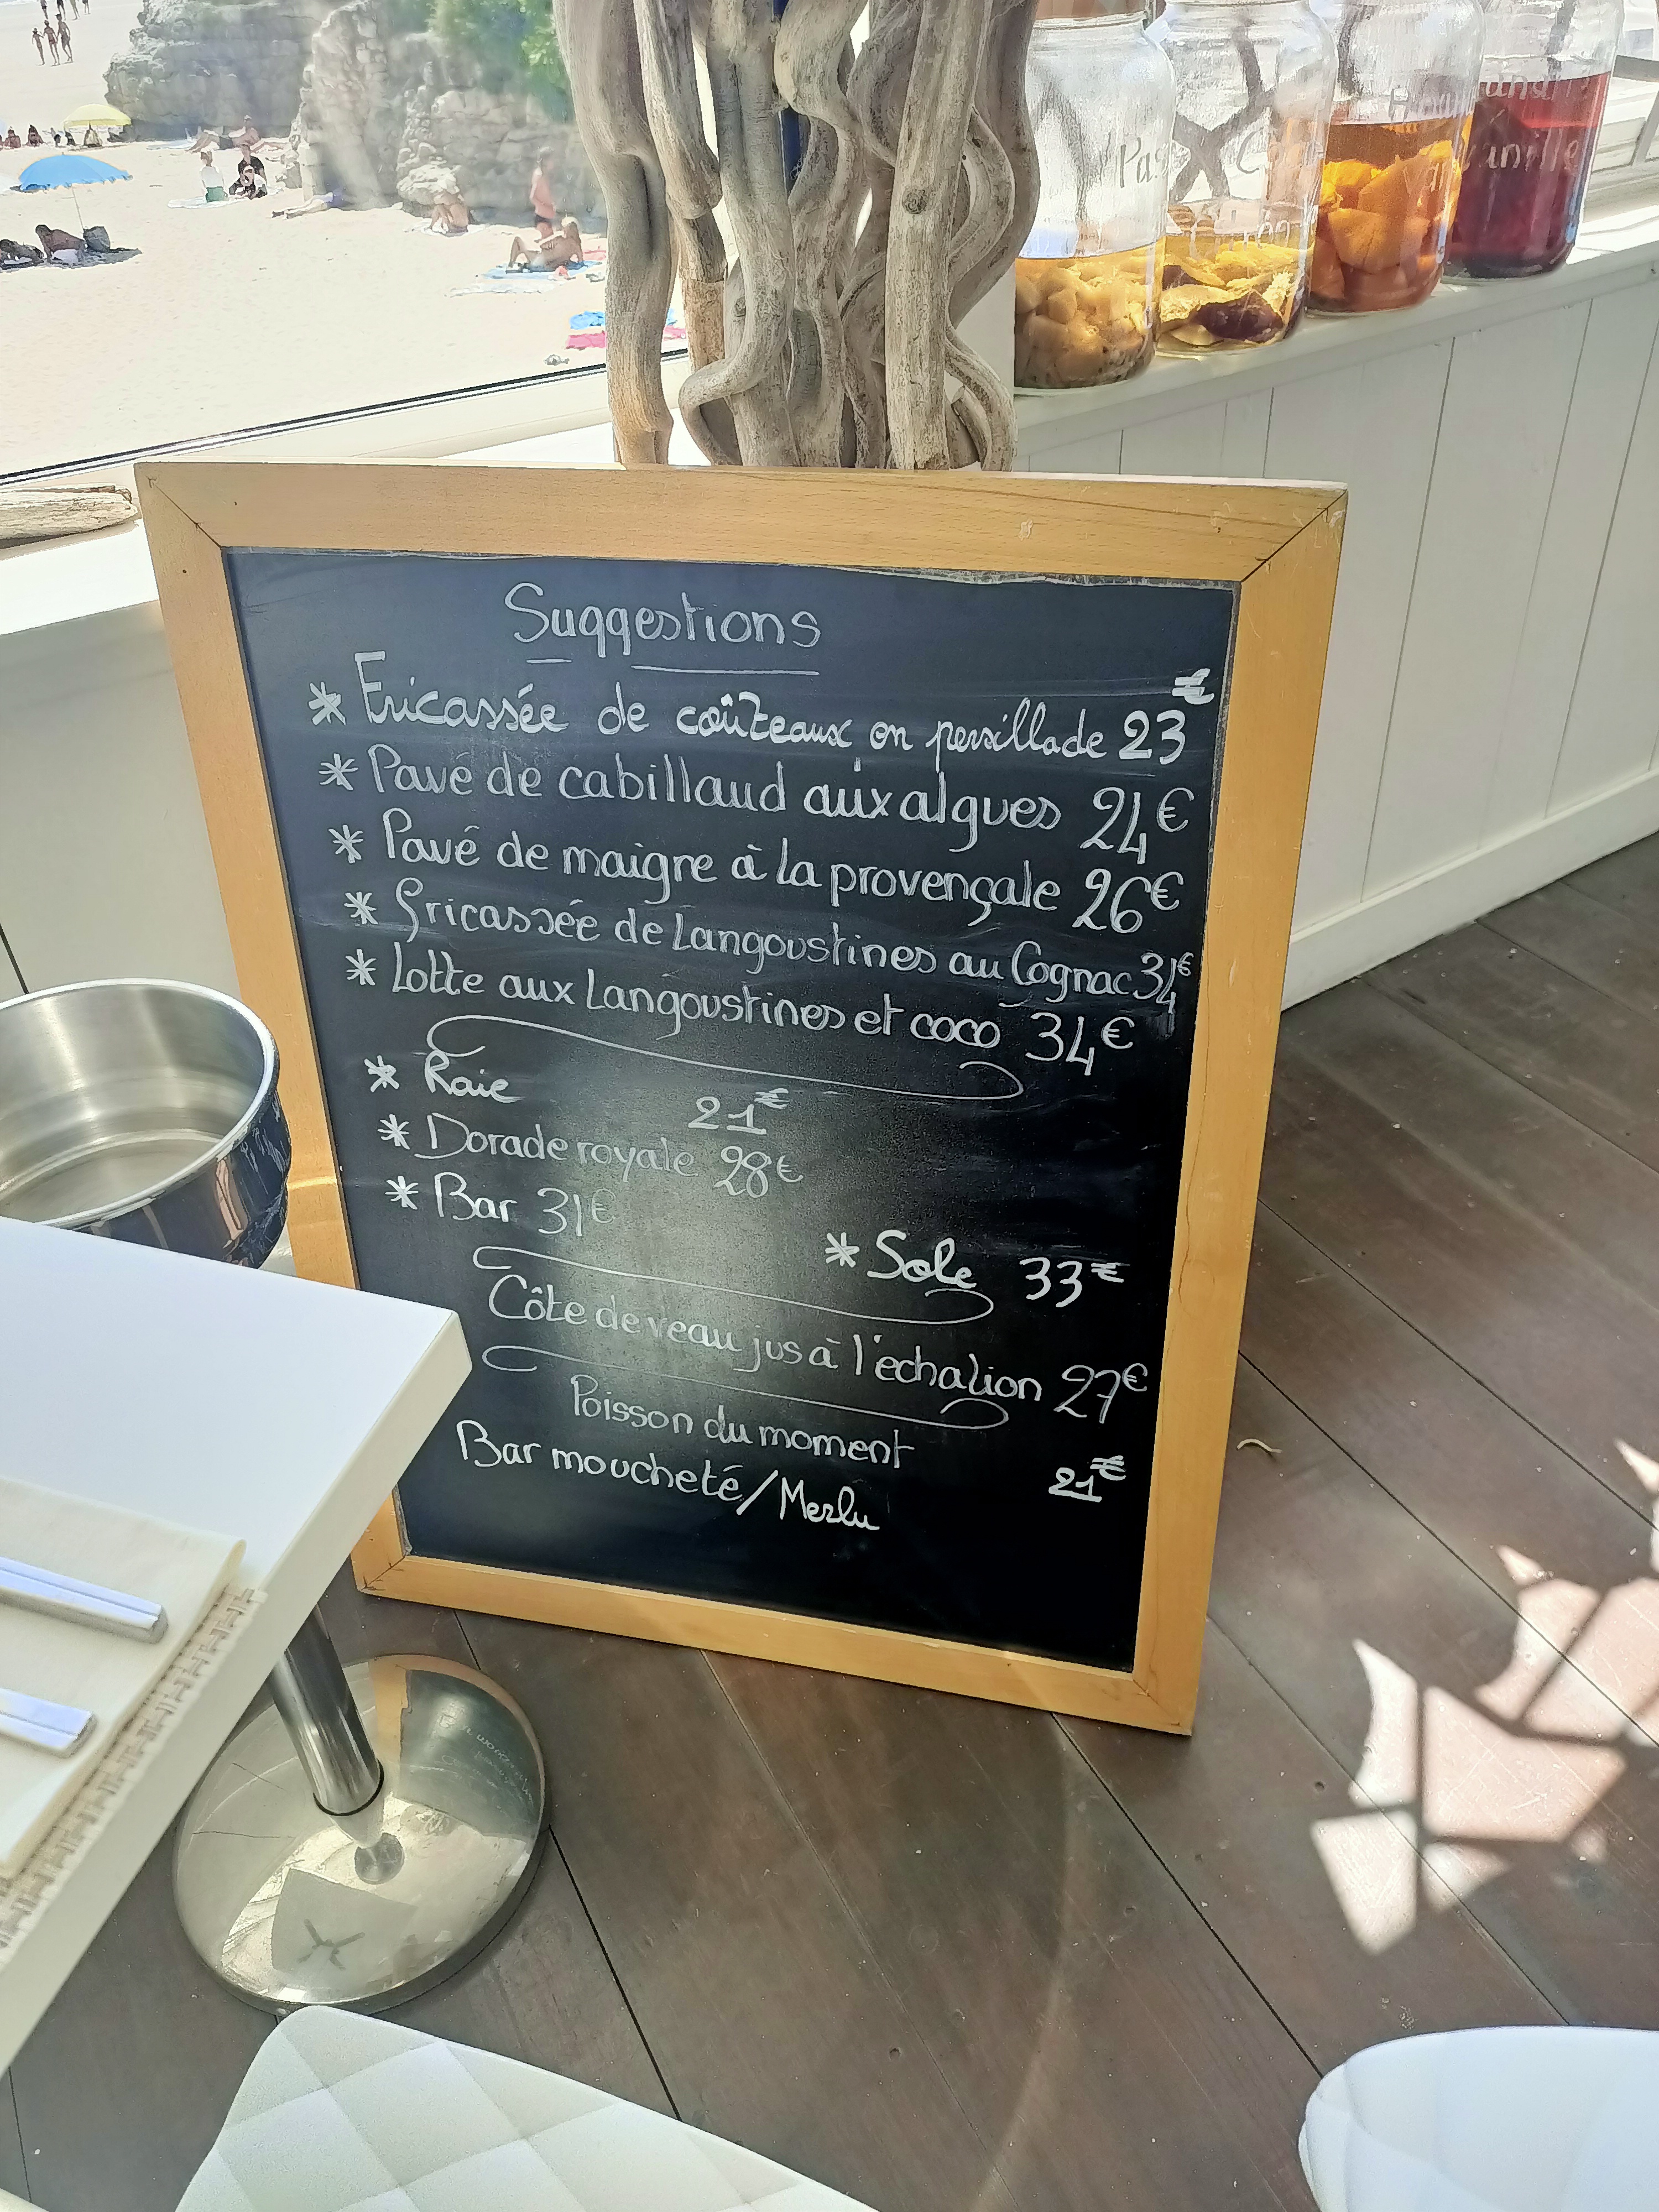 Suggestions
* Fricassée de coûteaux en persillade 23€
* Pavé de cabillaud aux algues 24€
* Pavé de maigre à la provençale 26€
* fricassée de Langoustines au Cognac 34€
* Lotte aux Langoustines et coco 34€
* Raie 21€
* Dorade royale 28€
* Bar 31€
* Sole 33€
Côte de veau jus à l'echalion 27€
Poisson du moment
Bar moucheté/Merlu 21€